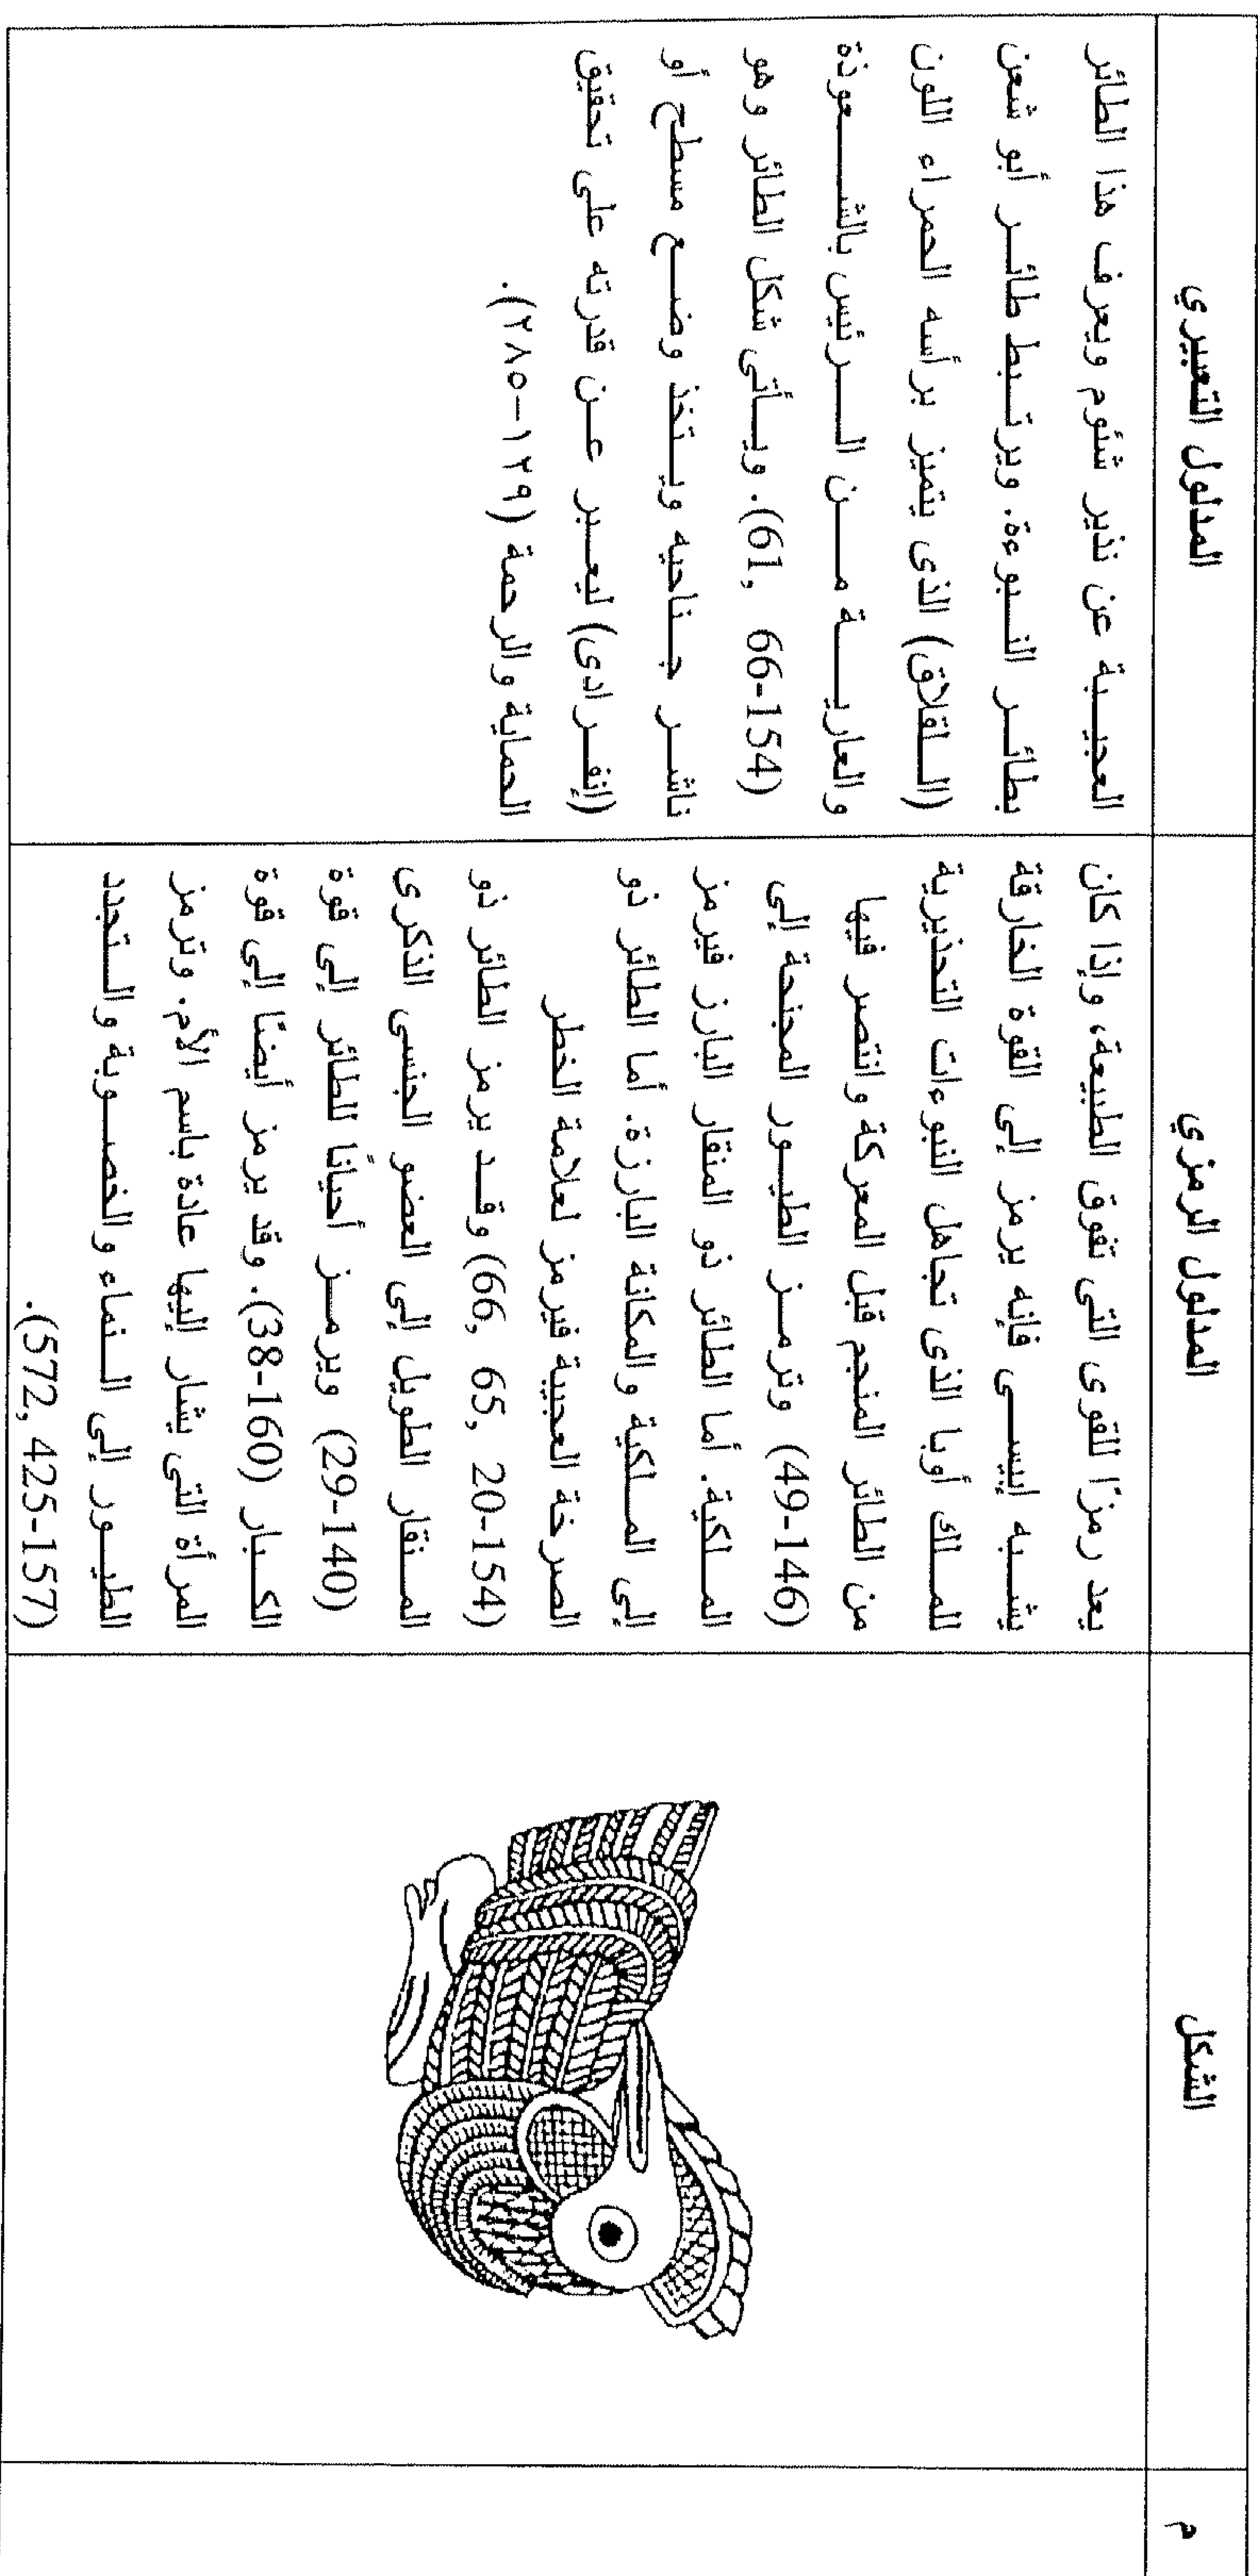 م
الشكل
المدلول الرمزي
المدلول التعبيري
يعد رمزًا للقوى التى تفوق الطبيعة، وإذا كان
يشبه إيبيسى فإنه يرمز إلى القوة الخارقة
للملك أوبا الذى تجاهل النبوءات التحذيرية
من الطائر المنجم قبل المعركة وانتصر فيها
(49-146) وترمز الطيور المجنحة إلى
الملكية. أما الطائر ذو المنقار البارز فيرمز
إلى الملكية والمكانة البارزة. أما الطائر ذو
الصرخة العجيبة فيرمز لعلامة الخطر
(66, 65, 20-154) وقد يرمز الطائر ذو
المنقار الطويل إلى العضو الجنسى الذكرى
(29-140) ويرمز أحيانًا للطائر إلى قوة
الكبار (38-160). وقد يرمز أيضًا إلى قوة
المرأة التى يشار إليها عادة باسم الأم. وترمز
الطيور إلى النماء والخصوبة والتجدد
(572, 425-157).
العجيبة عن نذير شئوم ويعرف هذا الطائر
بطائر النبوءة. ويرتبط طائر أبو شعن
(اللقلاق) الذى يتميز برأسه الحمراء اللون
والعارية من الرئيس بالشعوذة
(61, 66-154). ويأتى شكل الطائر وهو
ناشر جناحيه ويتخذ وضع مسطح أو
(إنفرادى) ليعبر عن قدرته على تحقيق
الحماية والرحمة (١٢٩-٢٨٥).